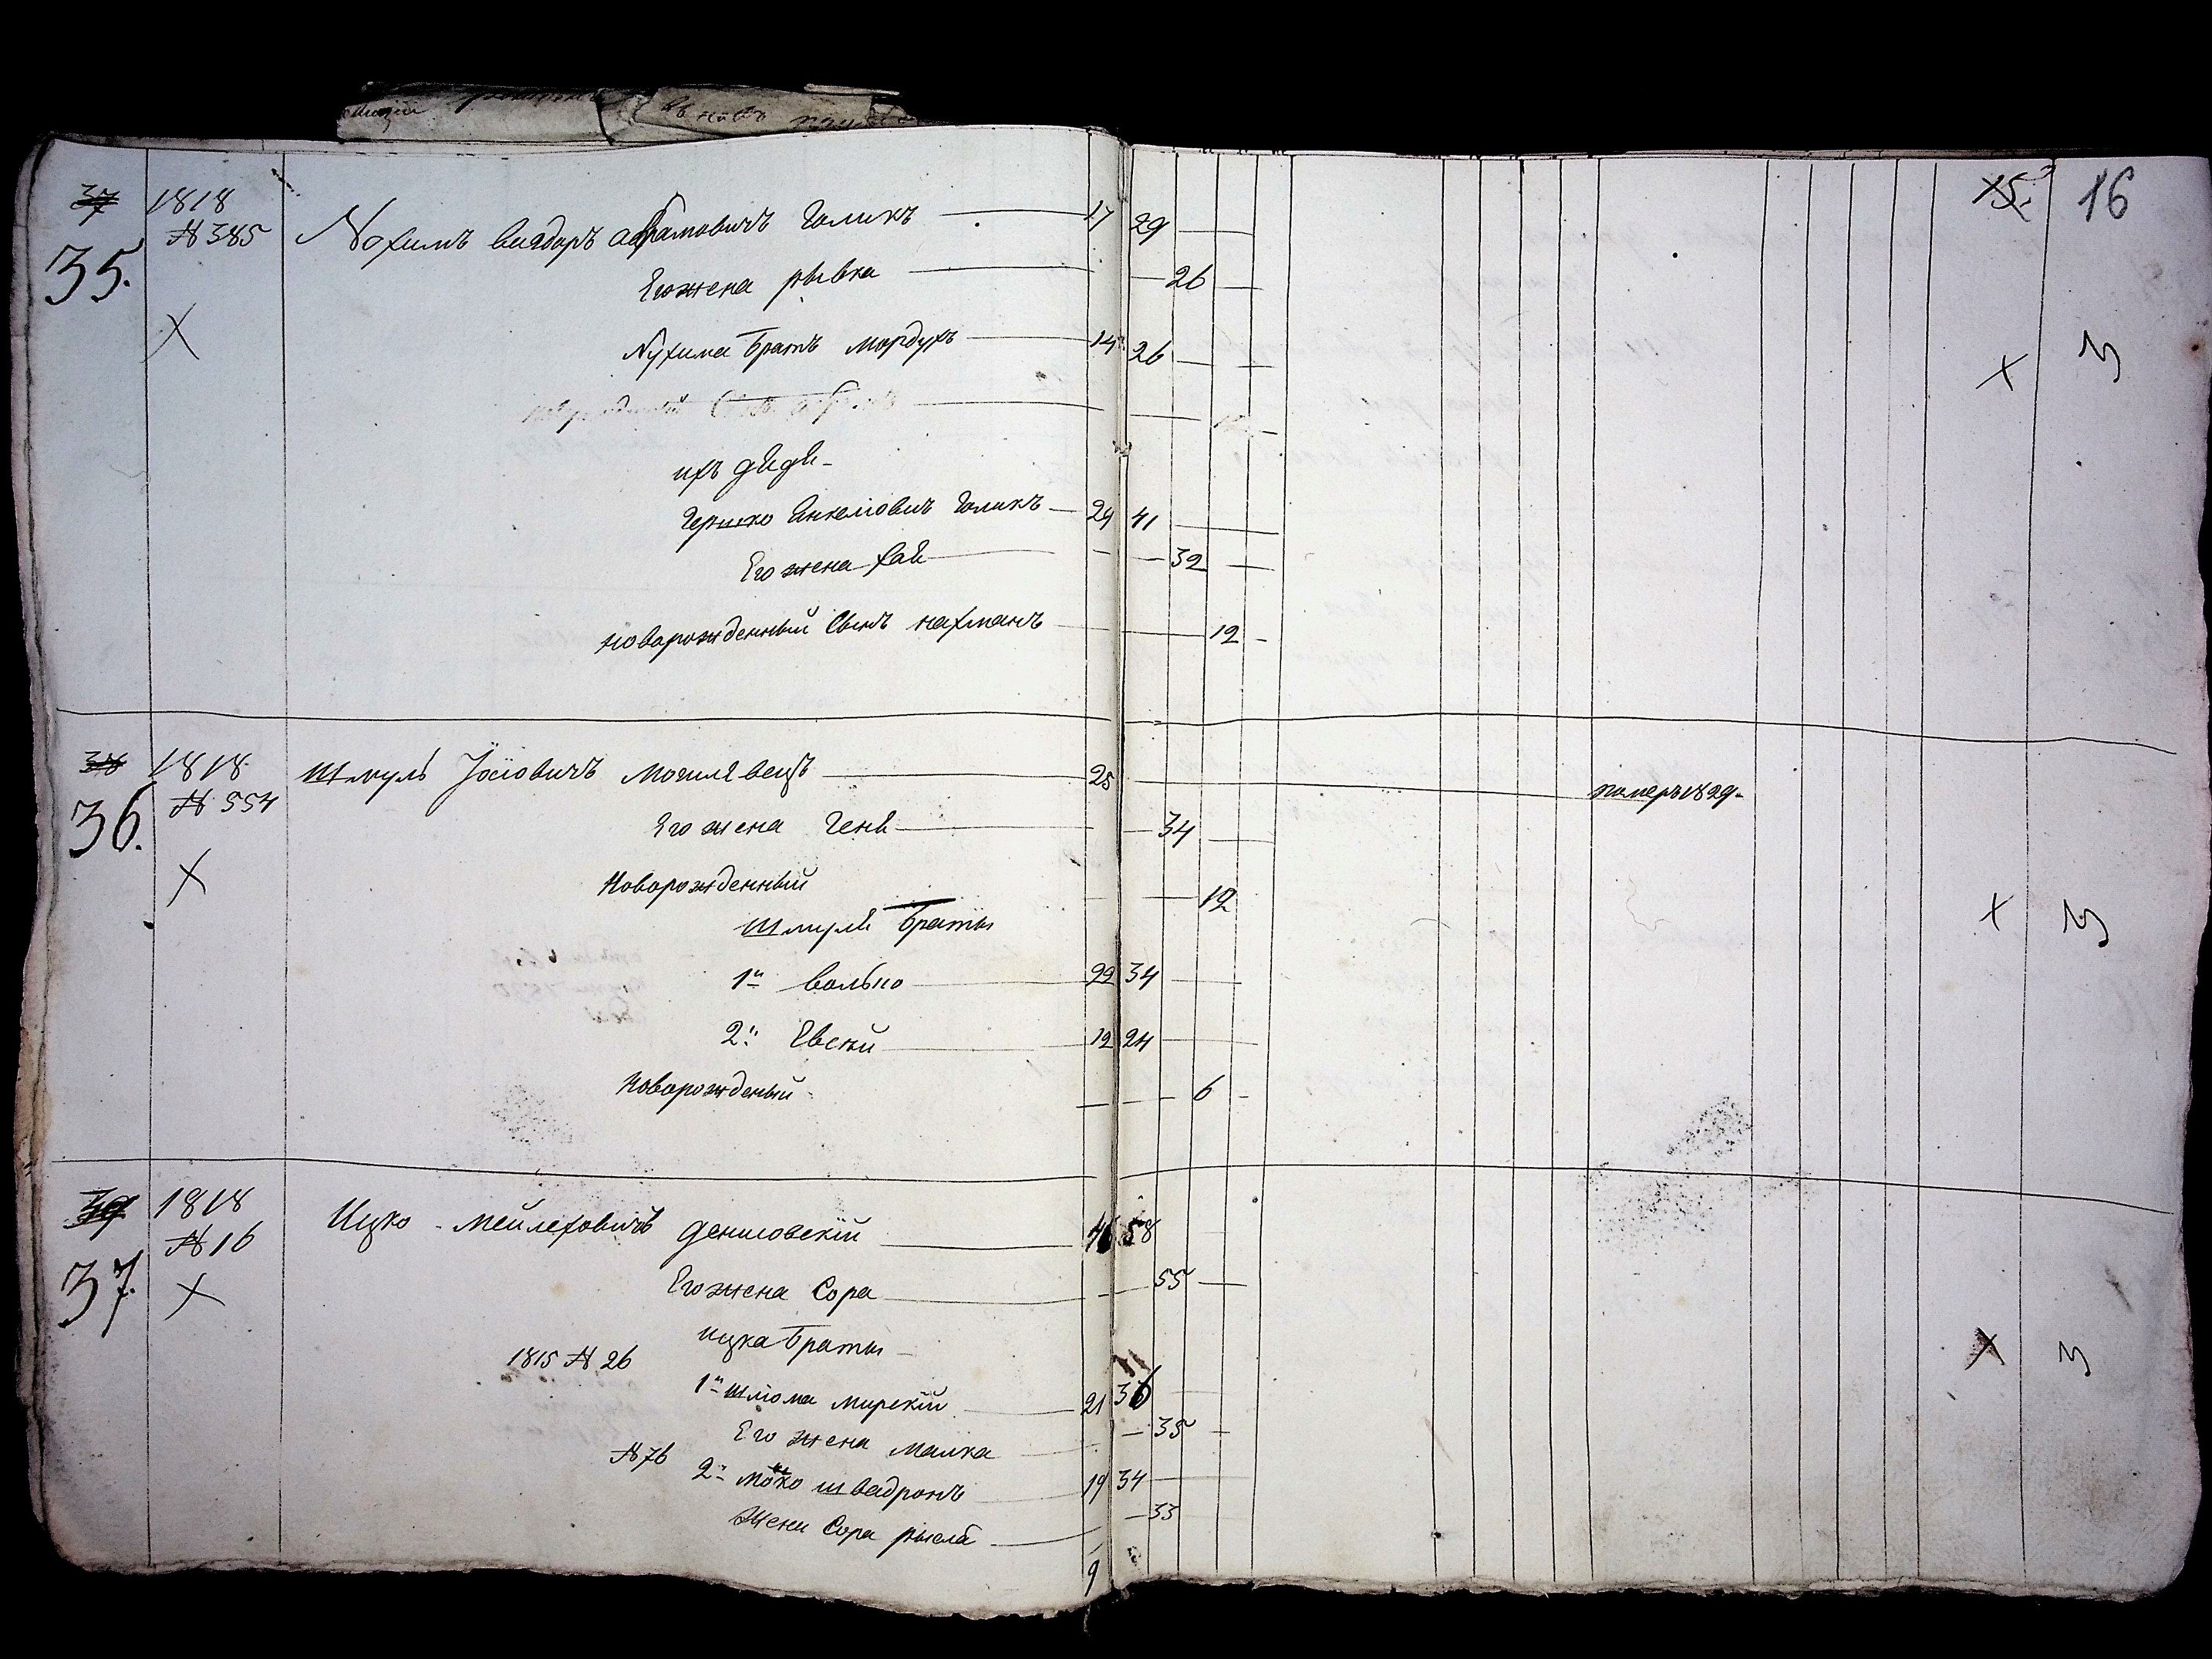 15. 16
37 1818
№ 385 Нохимъ вигдоръ абрамовичъ Голикъ 17 29
35.
Его жена рывка 26
Нухима братъ мордухъ 14 26
ихъ дядя
Гершко Янкеловичъ Голикъ 29 41
Его жена хая 32
новорожденный Сынъ нахманъ 12
38 1818
№ 554 Шмуль Іосіовичъ Могилевецъ 25 померъ 1829
36.
Его жена Геня 34
Новорожденный 12
Шмуля братья
1й волько 22 34
2й 12 24
Новорожденый 6
39 1818
№ 16 Ицко Мейлеховичъ Денисовскій 46 58
37.
Его жена Сора 55
ицка братья
1815 № 26
1й шліома мирскій 21 36
Его жена малка 35
№ 76 2й швадронъ 19 34
Жена Сора рысля 33
9